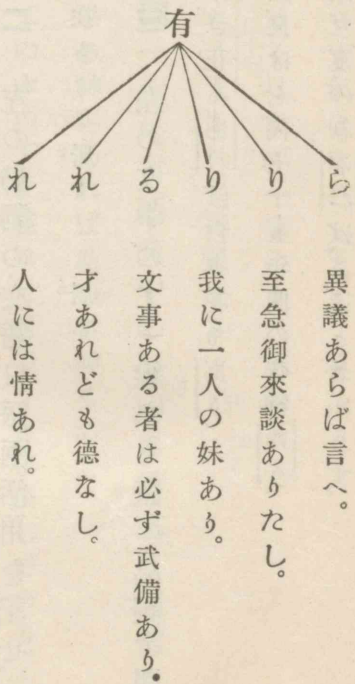 有
ら　異議あらば言へ。
り　至急御來談ありたし。
り　我に一人の妹あり。
る　文事ある者は必ず武備あり。
れ　才あれども德なし。
れ　人には情あれ。